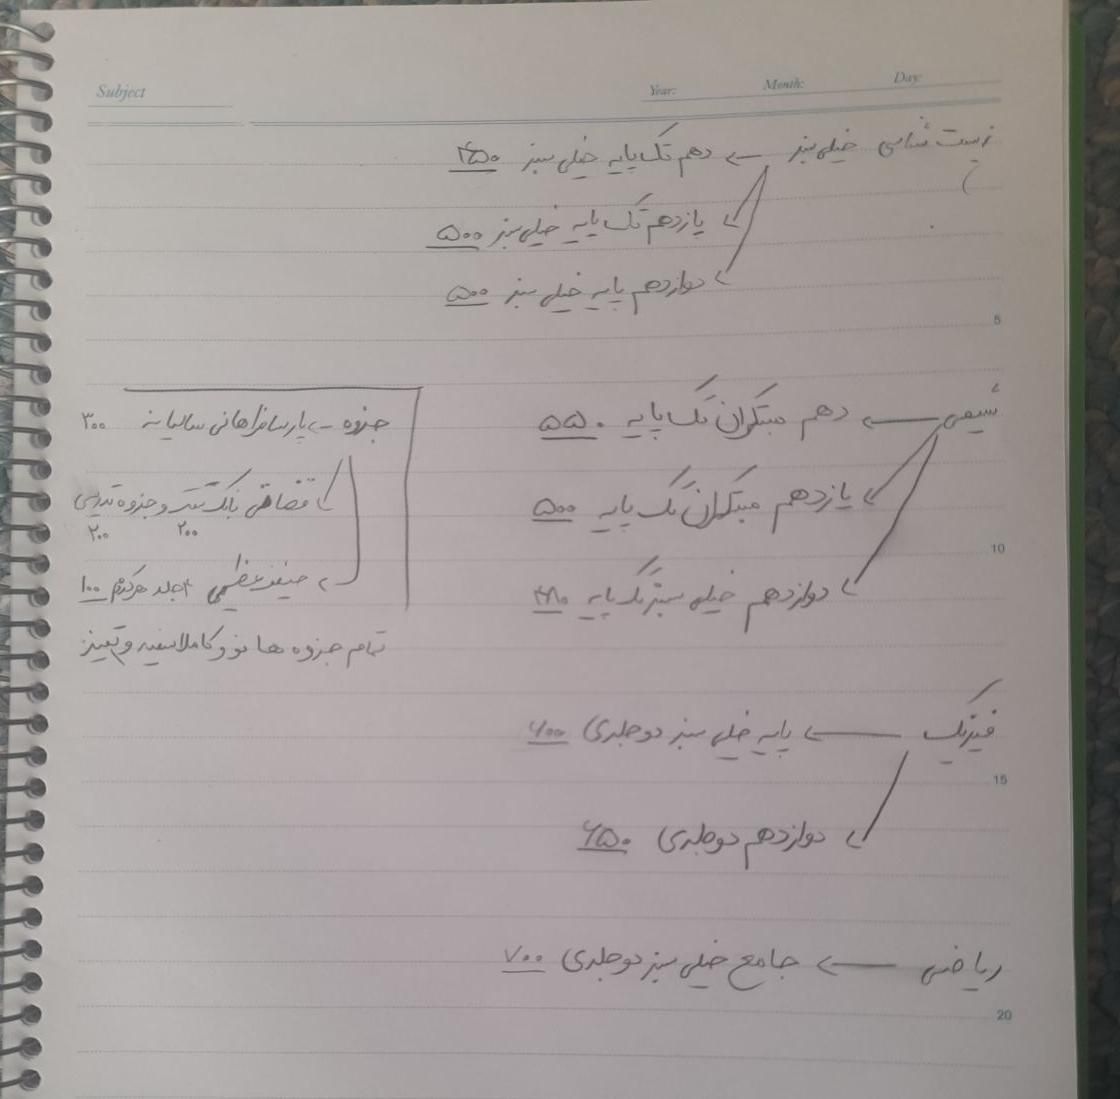 Subject Year: Month: Day:
زیست شناسی خیلی سبز ← دهم تک پایه خیلی سبز ۴۵۰
یازدهم تک پایه خیلی سبز ۵۰۰
دوازدهم پایه خیلی سبز ۵۰۰
5
شیمی ← دهم مبتکران تک پایه ۵۵۰
یازدهم مبتکران تک پایه ۵۰۰
10
دوازدهم خیلی سبز تک پایه ۴۸۰
جزوه ← پارسا فراهانی سالیانه ۳۰۰
قضاقی بانک تست و جزوه تدریس
۲۰۰ ۲۰۰
عظیمی ۲جلد هرکدوم ۱۰۰
تمام جزوه ها نو و کاملا سفید و تمیز
فیزیک ← پایه خیلی سبز دوجلدی ۷۰۰
15
دوازدهم دوجلدی ۶۵۰
ریاضی ← جامع خیلی سبز دوجلدی ۷۰۰
20